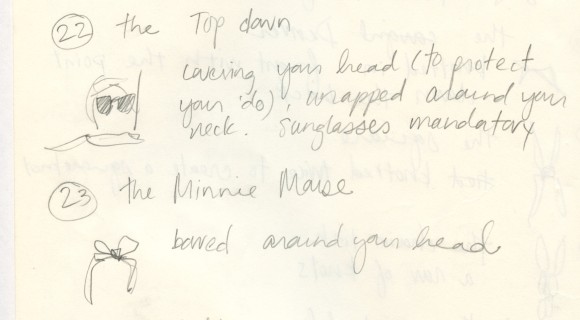 22 the Top down
covering your head (to protect
your 'do), wrapped around your
neck. Sunglasses mandatory
23 the Minnie Mouse
bowed around your head